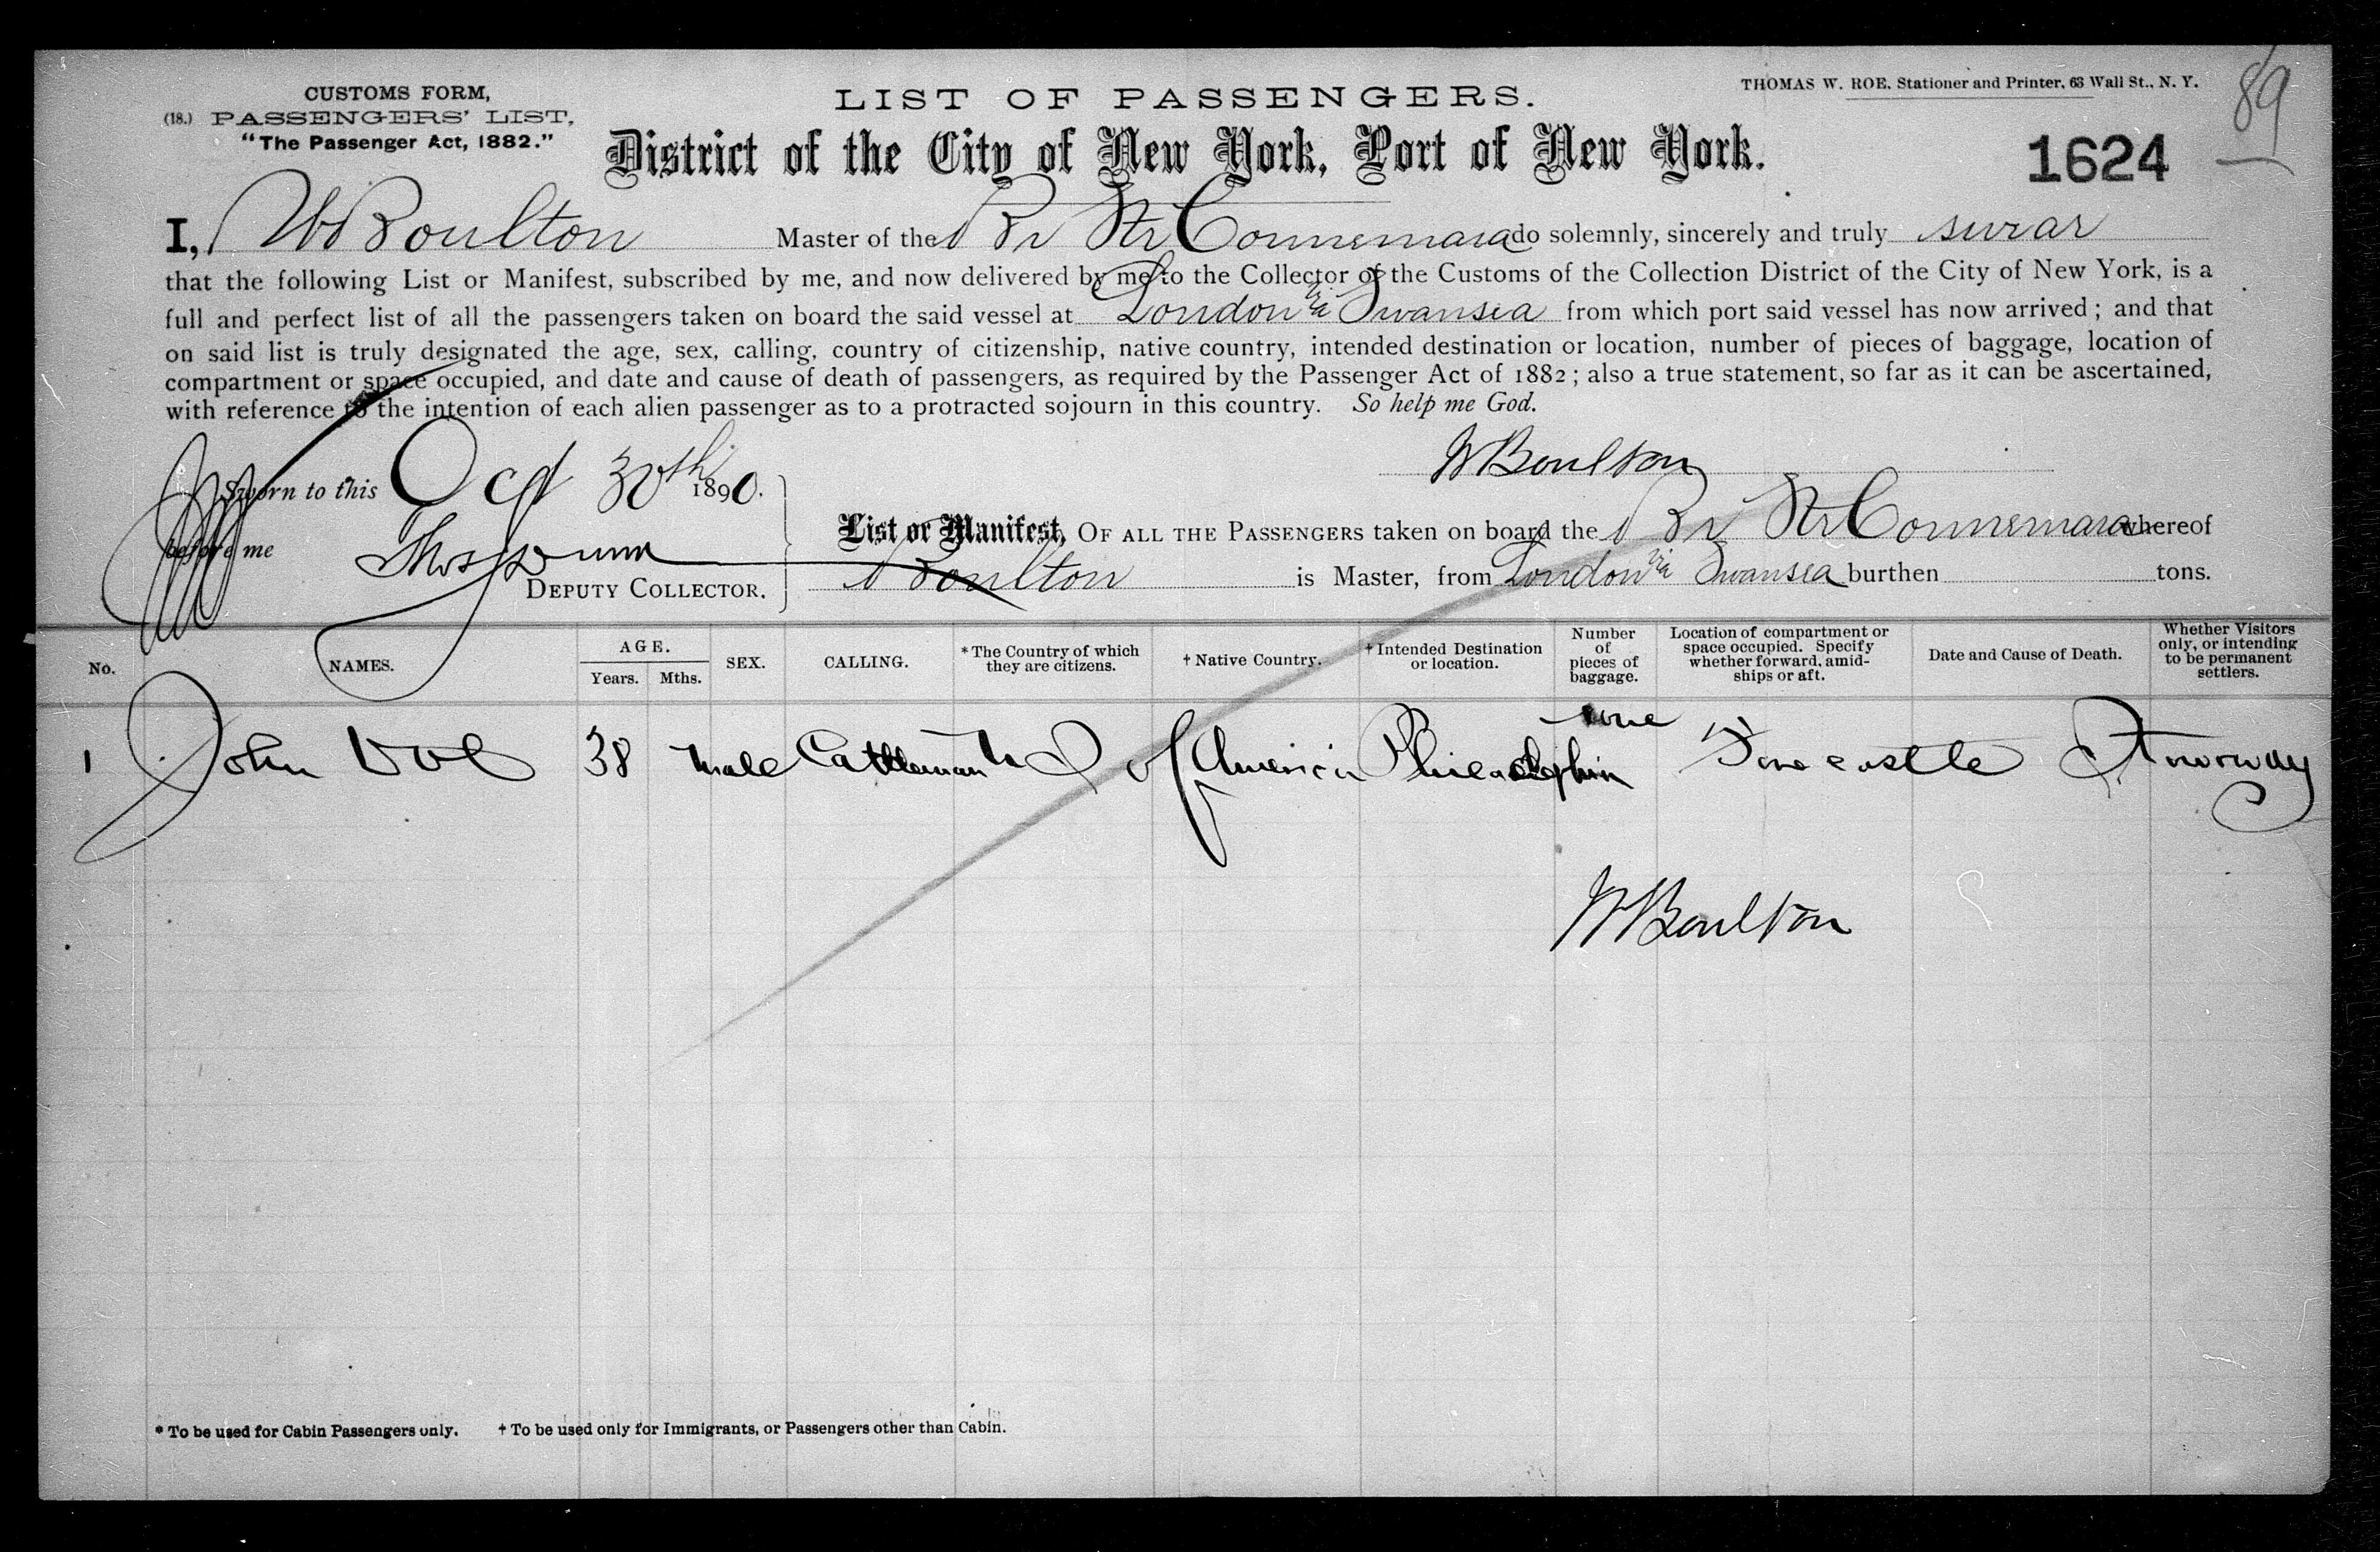 CUSTOMS FORM,
(18.) PASSENGERS' LIST,
"The Passenger Act, 1882."
LIST OF PASSENGERS.
THOMAS W. ROE, Stationer and Printer, 63 Wall St., N. Y.
89
District of the City of New York, Port of New York.
1624
I, W Boulton Master of the Br Str Connemara do solemnly, sincerely and truly swear
that the following List or Manifest, subscribed by me, and now delivered by me to the Collector of the Customs of the Collection District of the City of New York, is a
full and perfect list of all the passengers taken on board the said vessel at London via Swansea from which port said vessel has now arrived; and that
on said list is truly designated the age, sex, calling, country of citizenship, native country, intended destination or location, number of pieces of baggage, location of
compartment or space occupied, and date and cause of death of passengers, as required by the Passenger Act of 1882; also a true statement, so far as it can be ascertained,
with reference to the intention of each alien passenger as to a protracted sojourn in this country. So help me God.
W Boulton
Sworn to this Oct 30th 1890.
before me Thos Dunn
DEPUTY COLLECTOR.
List or Manifest, OF ALL THE PASSENGERS taken on board the Br Str Connemara whereof
Boulton is Master, from London via Swansea burthen tons.
No. NAMES. AGE. Years. Mths. SEX. CALLING. * The Country of which they are citizens. † Native Country. † Intended Destination or location. Number of pieces of baggage. Location of compartment or space occupied. Specify whether forward, amidships or aft. Date and Cause of Death. Whether Visitors only, or intending to be permanent settlers.
1 John 38 male Cattleman U S of America Philadelphia none Forecastle
W Boulton
* To be used for Cabin Passengers only. † To be used only for Immigrants, or Passengers other than Cabin.